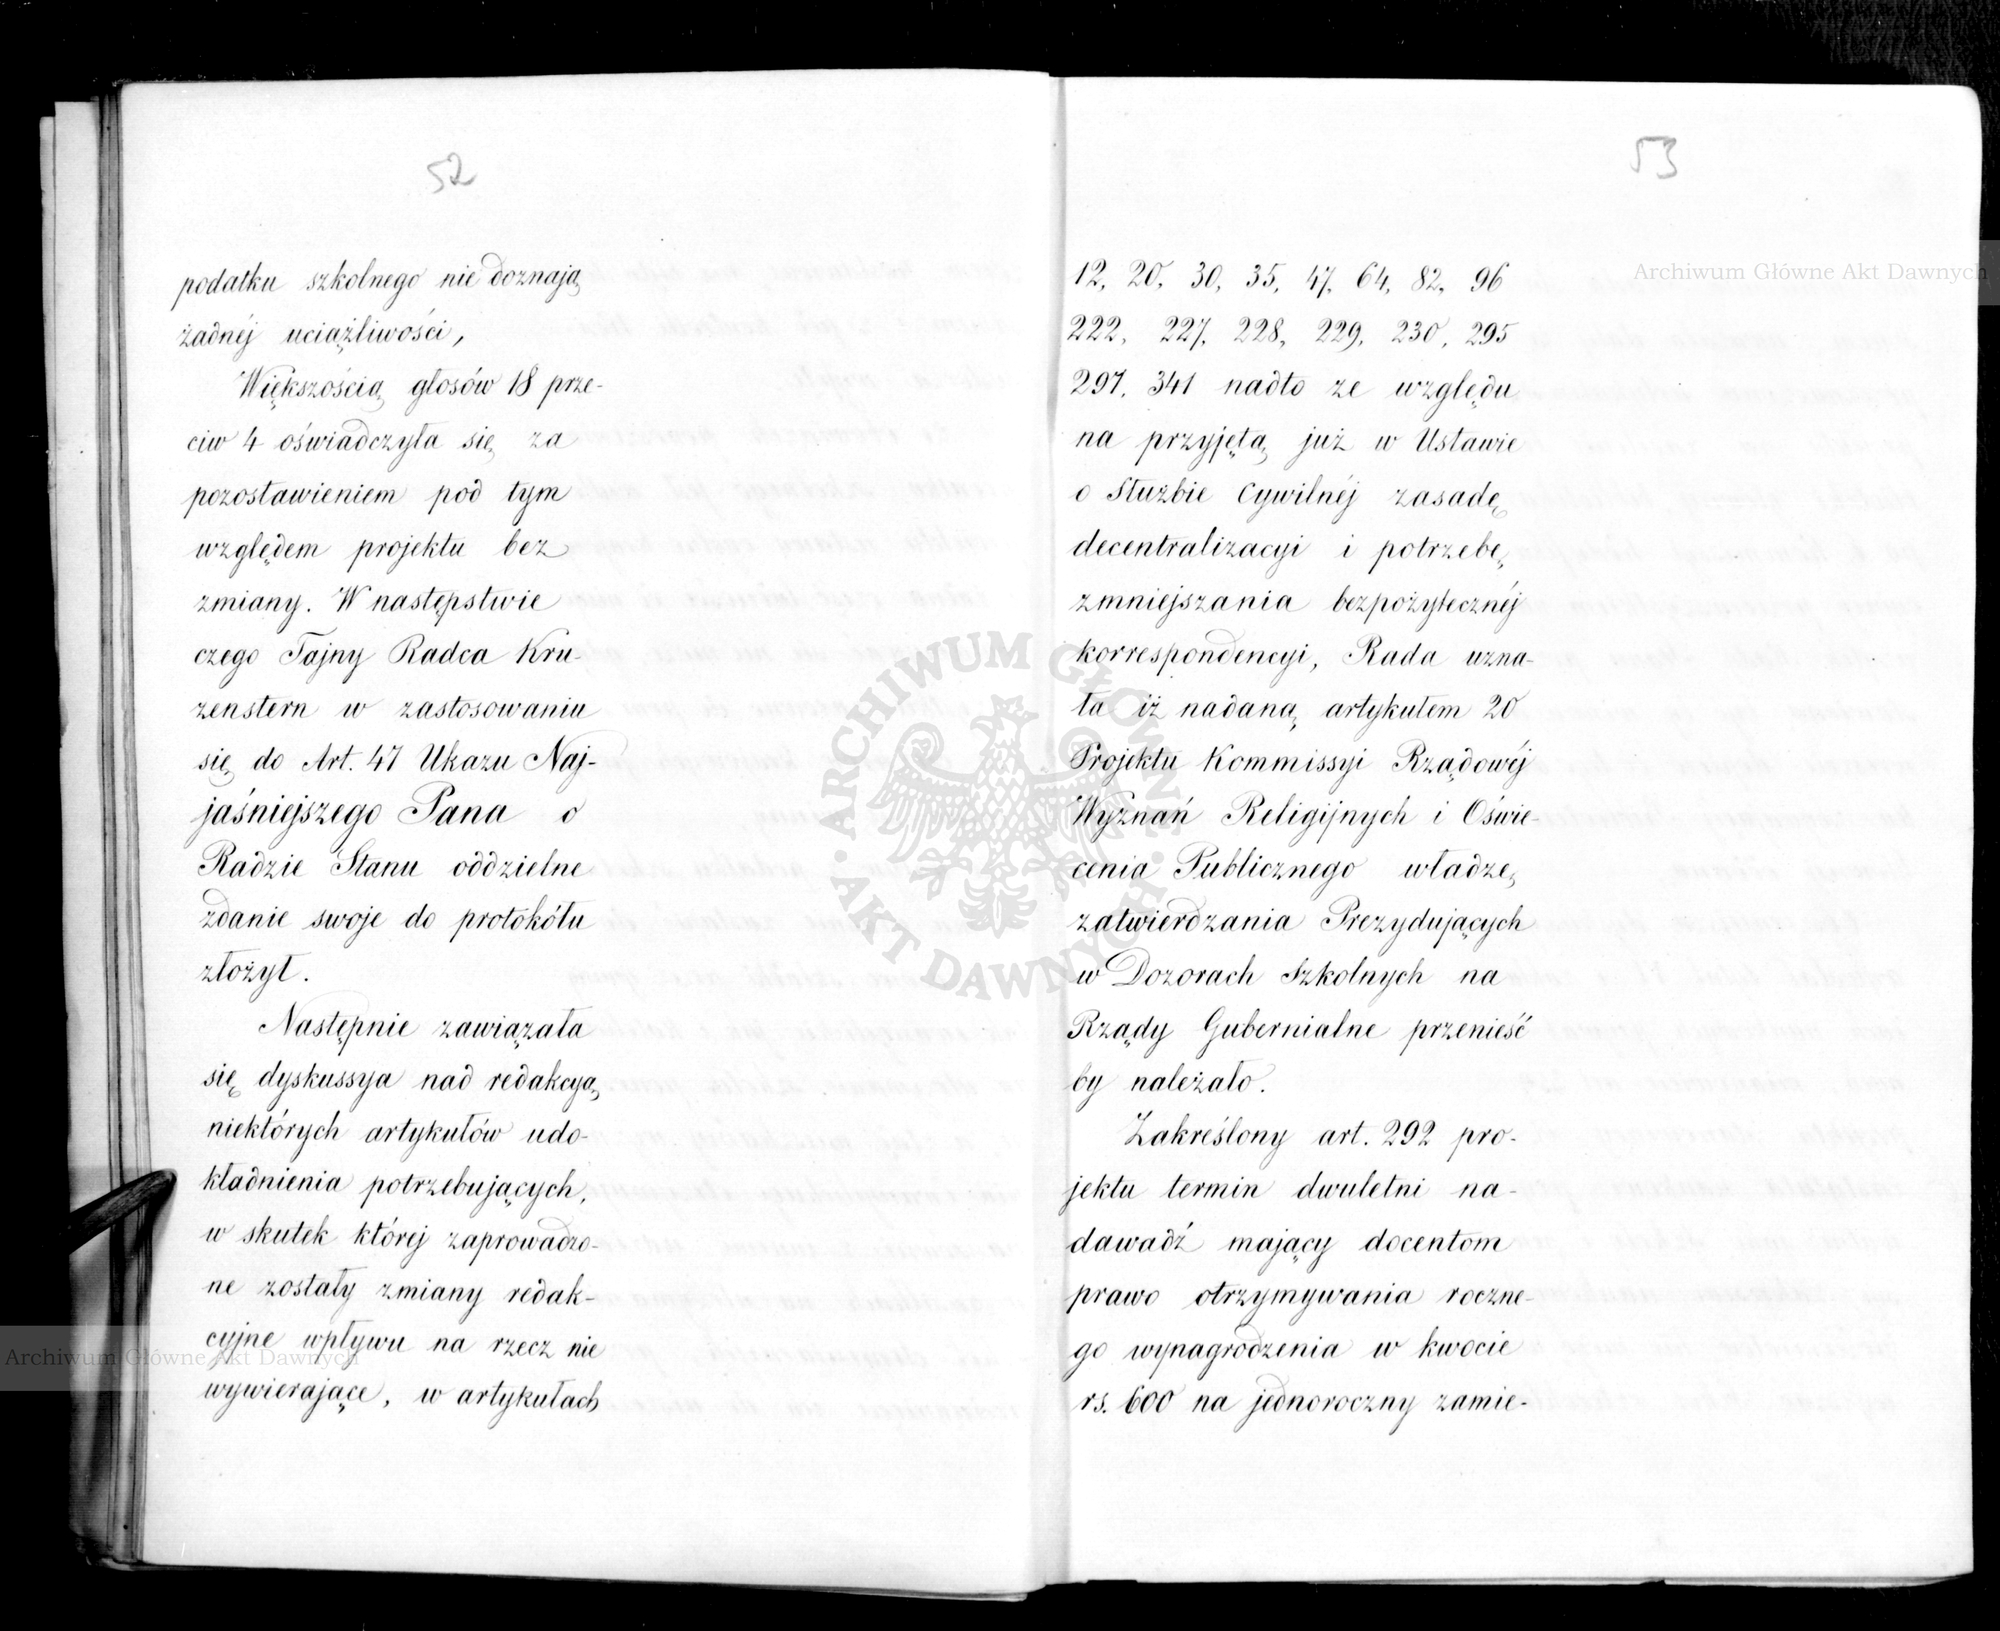 52
podatku szkolnego nie doznają
żadnéj uciążliwości,
Większością głosów 18 prze-
ciw 4 oświadczyła się za
pozostawieniem pod tym
względem projektu bez
zmiany. W następstwie
czego Tajny Radca Kru-
zenstern w zastosowaniu
się do Art. 47 Ukazu Naj-
jaśniejszego Pana o
Radzie Stanu oddzielne
zdanie swoje do protokółu
złożył.
Następnie zawiązała
się dyskussya nad redakcyą
niektórych artykułów udo-
kładnienia potrzebujących,
w skutek której zaprowadzo-
ne zostały zmiany redak-
cyjne wpływu na rzecz nie
wywierające, w artykułach
53
12, 20, 30, 35, 47, 64, 82, 96
222, 227, 228, 229, 230, 295
297, 341 nadto ze względu
na przyjętą już w Ustawie
o Służbie Cywilnéj zasadę
decentralizacyi i potrzebę
zmniejszania bezpożytecznéj
korrespondencyi, Rada uzna-
ła iż nadaną artykułem 20
Projektu Kommissyi Rządowéj
Wyznań Religijnych i Oświe-
cenia Publicznego władzę
zatwierdzania Prezydujących
w Dozorach Szkolnych na
Rządy Gubernialne przenieść
by należało.
Zakreślony art. 292 pro-
jektu termin dwuletni na-
dawadź mający docentom
prawo otrzymywania roczne-
go wynagrodzenia w kwocie
rs. 600 na jednoroczny zamie-
Archiwum Główne Akt Dawnych
Archiwum Główne Akt Dawnych
ARCHIWUM GŁÓWNE
AKT DAWNYCH